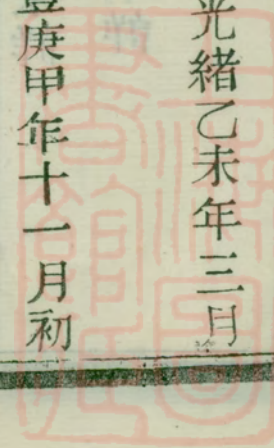 光緒乙未年三月
庚甲年十一月初